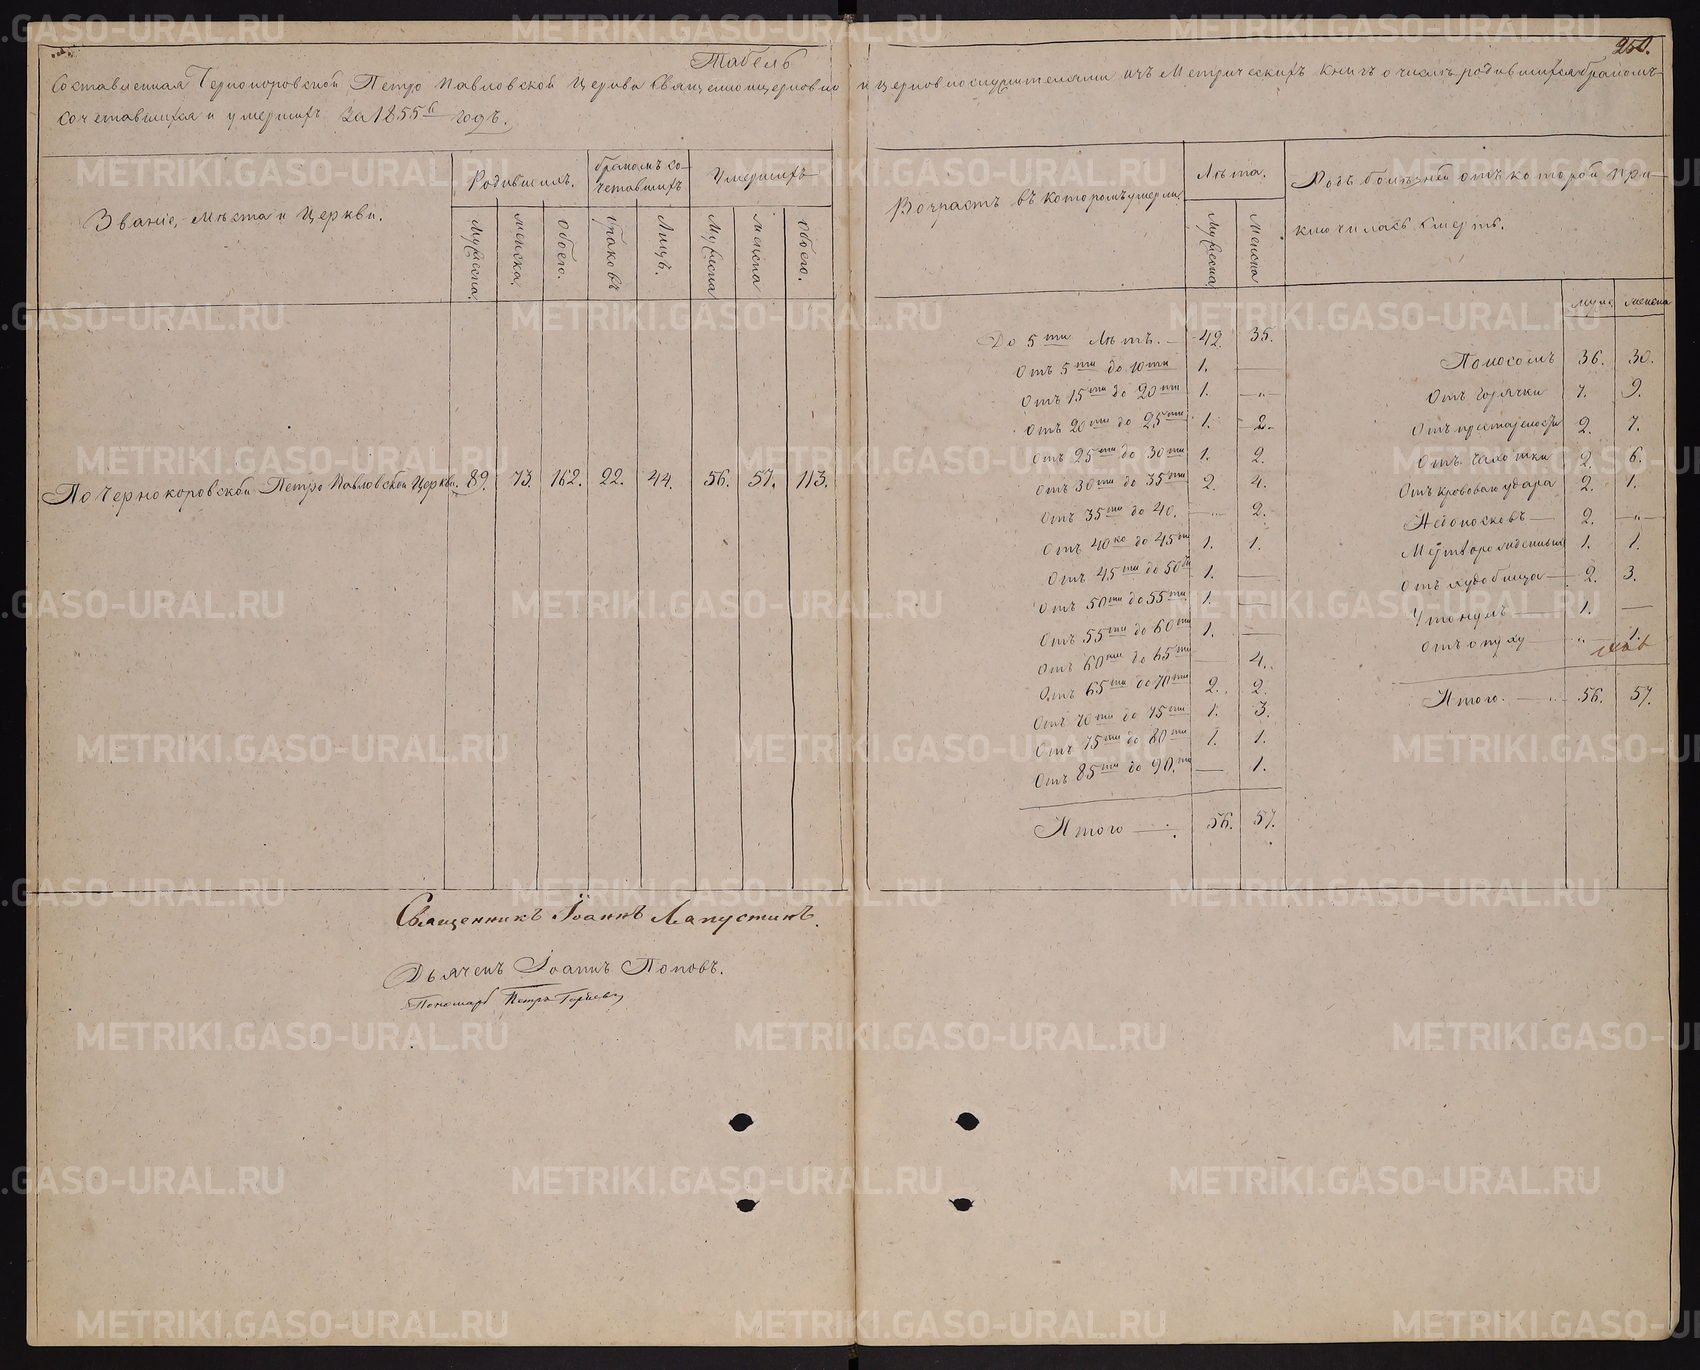 250.
Табель
Составленная Чернокоровской Петро Павловской Церкви Священноцерковно и церковнослужителями изъ Метрическихъ книгъ о числѣ родившихся бракомъ
сочетавшихся и умершихъ За 1855й годъ.
Званіе, мѣста и Церкви.
Родившихъ.
бракомъ со-
четавшихъ
Умершихъ
Мужеска.
женска.
обоего.
браковъ
Лицъ.
Мужеска
женска
обоего.
По Чернокоровской Петро Павловской Церкви. 89. 73. 162. 22. 44. 56. 57. 113.
Священникъ Іоаннъ Лапустинъ.
Дьячекъ Іоаннъ Поповъ.
Пономарь Петръ
Возрастъ въ которомъ умерли
Лѣта.
Мужеска
женска
До 5ти Лѣтъ. — 42. 35.
Отъ 5ти до 10ти 1. —
Отъ 15ти до 20ти 1. — „ —
Отъ 20ти до 25ти 1. 2.
Отъ 25ти до 30ти 1. 2.
Отъ 30ти до 35ти 2. 4.
Отъ 35ти до 40. — 2.
Отъ 40ко до 45ти 1. 1.
Отъ 45ти до 50ти 1. —
Отъ 50ти до 55ти 1. —
Отъ 55ти до 60ти 1. —
Отъ 60ти до 65ти — 4.
Отъ 65ти до 70ти 2. 2.
Отъ 70ти до 75ти 1. 3.
Отъ 75ти до 80ти 1. 1.
Отъ 85ти до 90.ти — 1.
Итого — 56. 57.
Родъ болѣзней отъ которой при-
ключилась смерть.
муже женска
Поносомъ 36. 30.
Отъ горячки 7. 9.
Отъ престарелости 2. 7.
Отъ Чахотки 2. 6.
Отъ кроваваго удара 2. 1.
Недоносковъ — 2. — „ —
Мертворожденныхъ 1. 1.
Отъ худобища — 2. 3.
Утонулъ — 1. —
Отъ опуху „ — 1.
Итого. — 56. 57.
METRIKI.GASO-URAL.RU